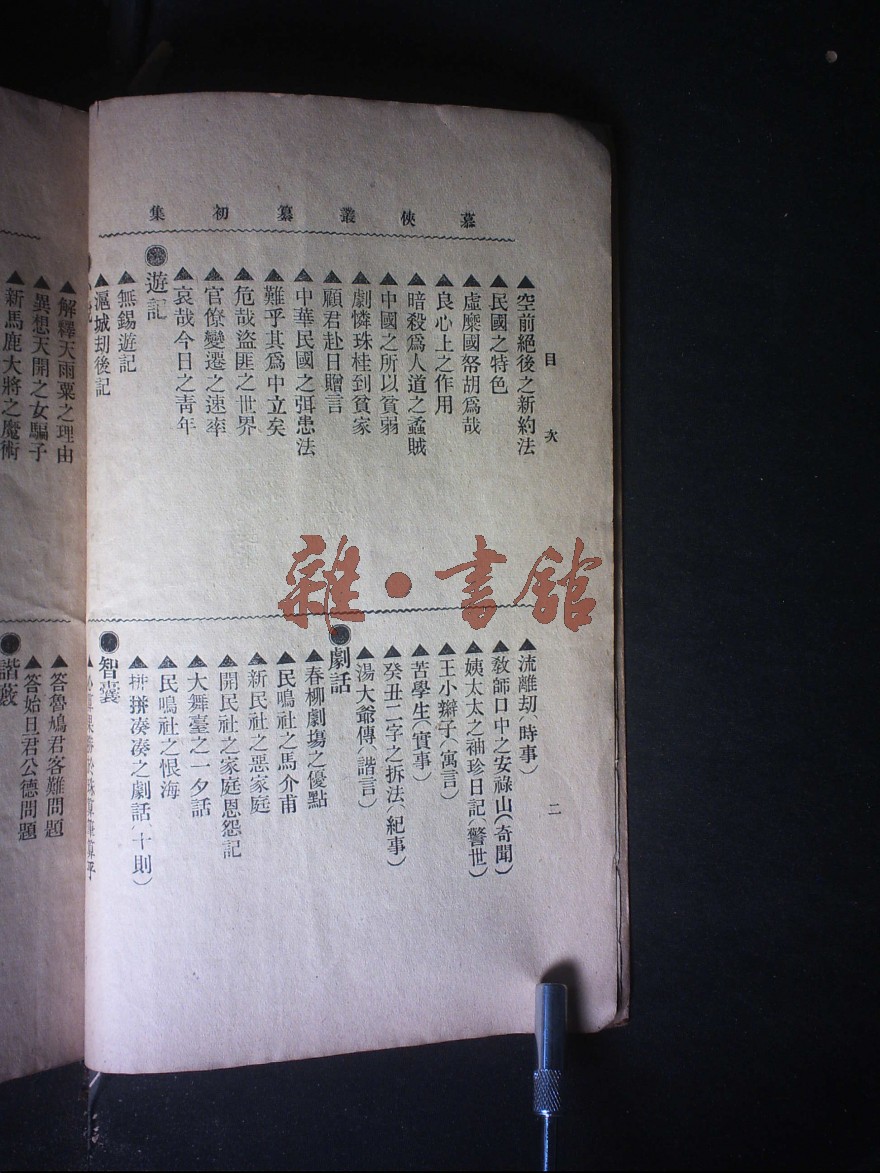 慕俠叢纂初集
目次
二
▲空前絕後之新約法
▲民國之特色
▲虛糜國帑胡爲哉
▲良心上之作用
▲暗殺爲人道之蟊賊
▲中國之所以貧弱
▲劇憐珠桂到貧家
▲顧君赴日贈言
▲中華民國之弭患法
▲難乎其爲中立矣
▲危哉盜匪之世界
▲官僚變遷之速率
▲哀哉今日之靑年
遊記
▲無錫遊記
▲滬城刧後記
▲流離刧(時事)
▲敎師口中之安祿山(奇聞)
▲姨太太之袖珍日記(警世)
▲王小辮子(寓言)
▲苦學生(實事)
▲癸丑二字之拆法(紀事)
▲湯大爺傳(諧言)
劇話
▲春柳劇塲之優點
▲民鳴社之馬介甫
▲新民社之惡家庭
▲開民社之家庭恩怨記
▲大舞臺之一夕話
▲民鳴社之恨海
▲拼拼凑凑之劇話(十則)
智囊
▲解釋天雨粟之理由
▲異想天開之女騙子
▲新馬鹿大將之魔術
▲答魯鳩君客難問題
▲答始旦君公德問題
諧藪
雜·書館